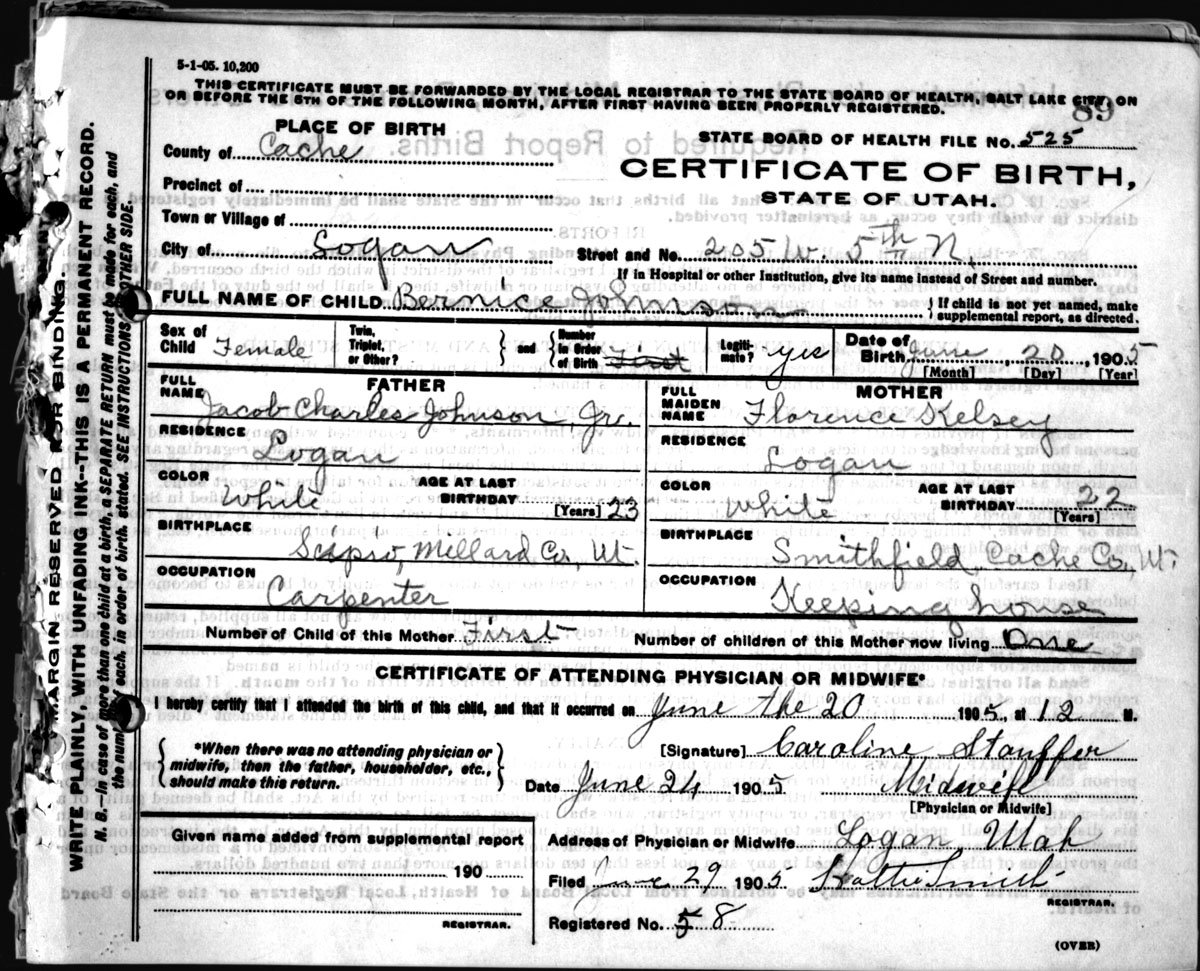 5-1-05. 10,200
THIS CERTIFICATE MUST BE FORWARDED BY THE LOCAL REGISTRAR TO THE STATE BOARD OF HEALTH, SALT LAKE CITY, ON
OR BEFORE THE 5TH OF THE FOLLOWING MONTH, AFTER FIRST HAVING BEEN PROPERLY REGISTERED.
89
PLACE OF BIRTH
STATE BOARD OF HEALTH FILE No. 525
County of Cache
CERTIFICATE OF BIRTH,
Precinct of
STATE OF UTAH.
Town or Village of
City of Logan Street and No. 205 W. 5th N.
If in Hospital or other Institution, give its name instead of Street and number.
FULL NAME OF CHILD Bernice Johnson } If child is not yet named, make supplemental report, as directed.
Sex of Child Female Twin, Triplet, or Other? } and { Number in Order of Birth First Legiti-mate? yes Date of Birth June 20, 1905
[Month] [Day] [Year]
FATHER
MOTHER
FULL NAME Jacob Charles Johnson, Jr.
FULL MAIDEN NAME Florence Kelsey
RESIDENCE Logan
RESIDENCE Logan
COLOR White AGE AT LAST BIRTHDAY 23 [Years]
COLOR White AGE AT LAST BIRTHDAY 22 [Years]
BIRTHPLACE Scipio, Millard Co., Ut.
BIRTHPLACE Smithfield, Cache Co., Ut.
OCCUPATION Carpenter
OCCUPATION Keeping house
Number of Child of this Mother First Number of children of this Mother now living One
CERTIFICATE OF ATTENDING PHYSICIAN OR MIDWIFE*
I hereby certify that I attended the birth of this child, and that it occurred on June the 20 1905, at 12 M.
{ *When there was no attending physician or midwife, then the father, householder, etc., should make this return. }
[Signature] Caroline Stauffer
Date June 24 1905 Midwife
[Physician or Midwife]
Given name added from supplemental report
190
REGISTRAR.
Address of Physician or Midwife Logan, Utah
Filed June 29 1905 Smith
REGISTRAR.
Registered No. 58
(OVER)
MARGIN RESERVED FOR BINDING
WRITE PLAINLY WITH UNFADING INK--THIS IS A PERMANENT RECORD.
N. B.--In case of more than one child at a birth, a SEPARATE RETURN must be made for each, and
the number of each, in order of birth, stated. SEE INSTRUCTIONS OTHER SIDE.